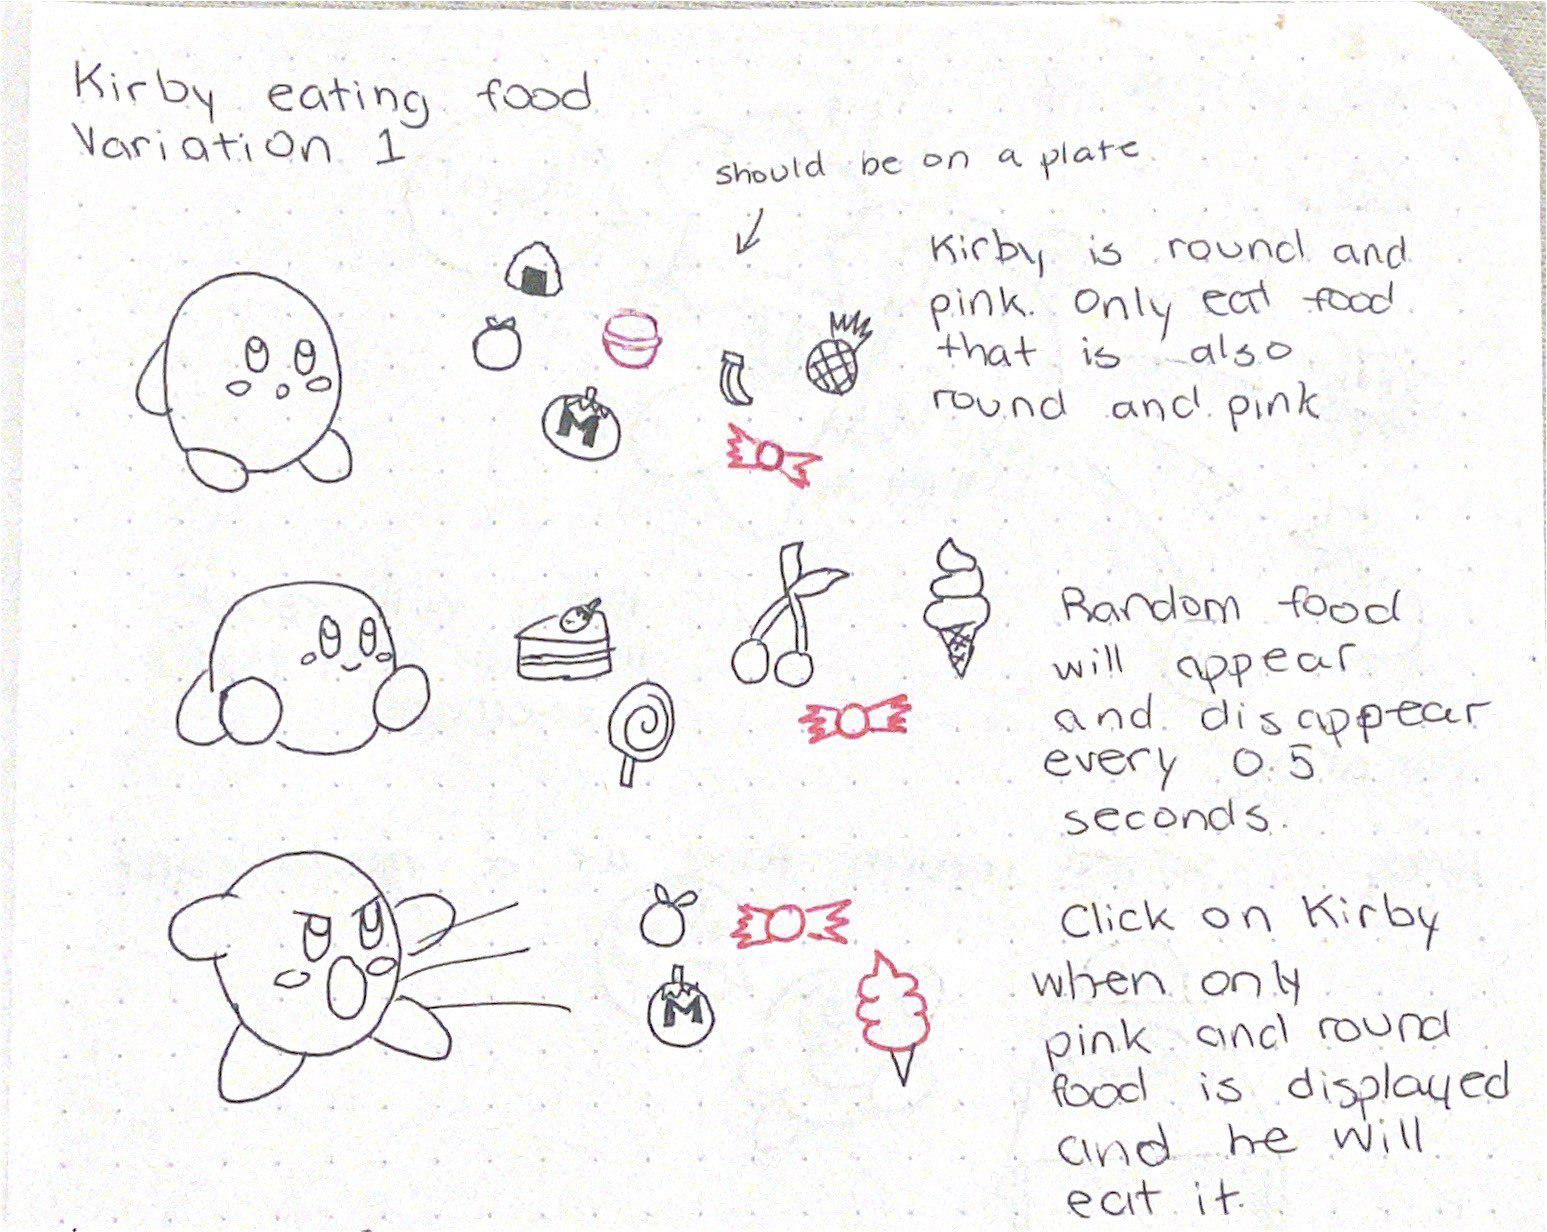 Kirby eating food
Variation 1
should be on a plate
Kirby is round and
pink. Only eat food
that is also
round and pink
M
Random food
will appear
and disappear
every 0.5
seconds.
Click on Kirby
when only
pink and round
food is displayed
and he will
eat it.
M